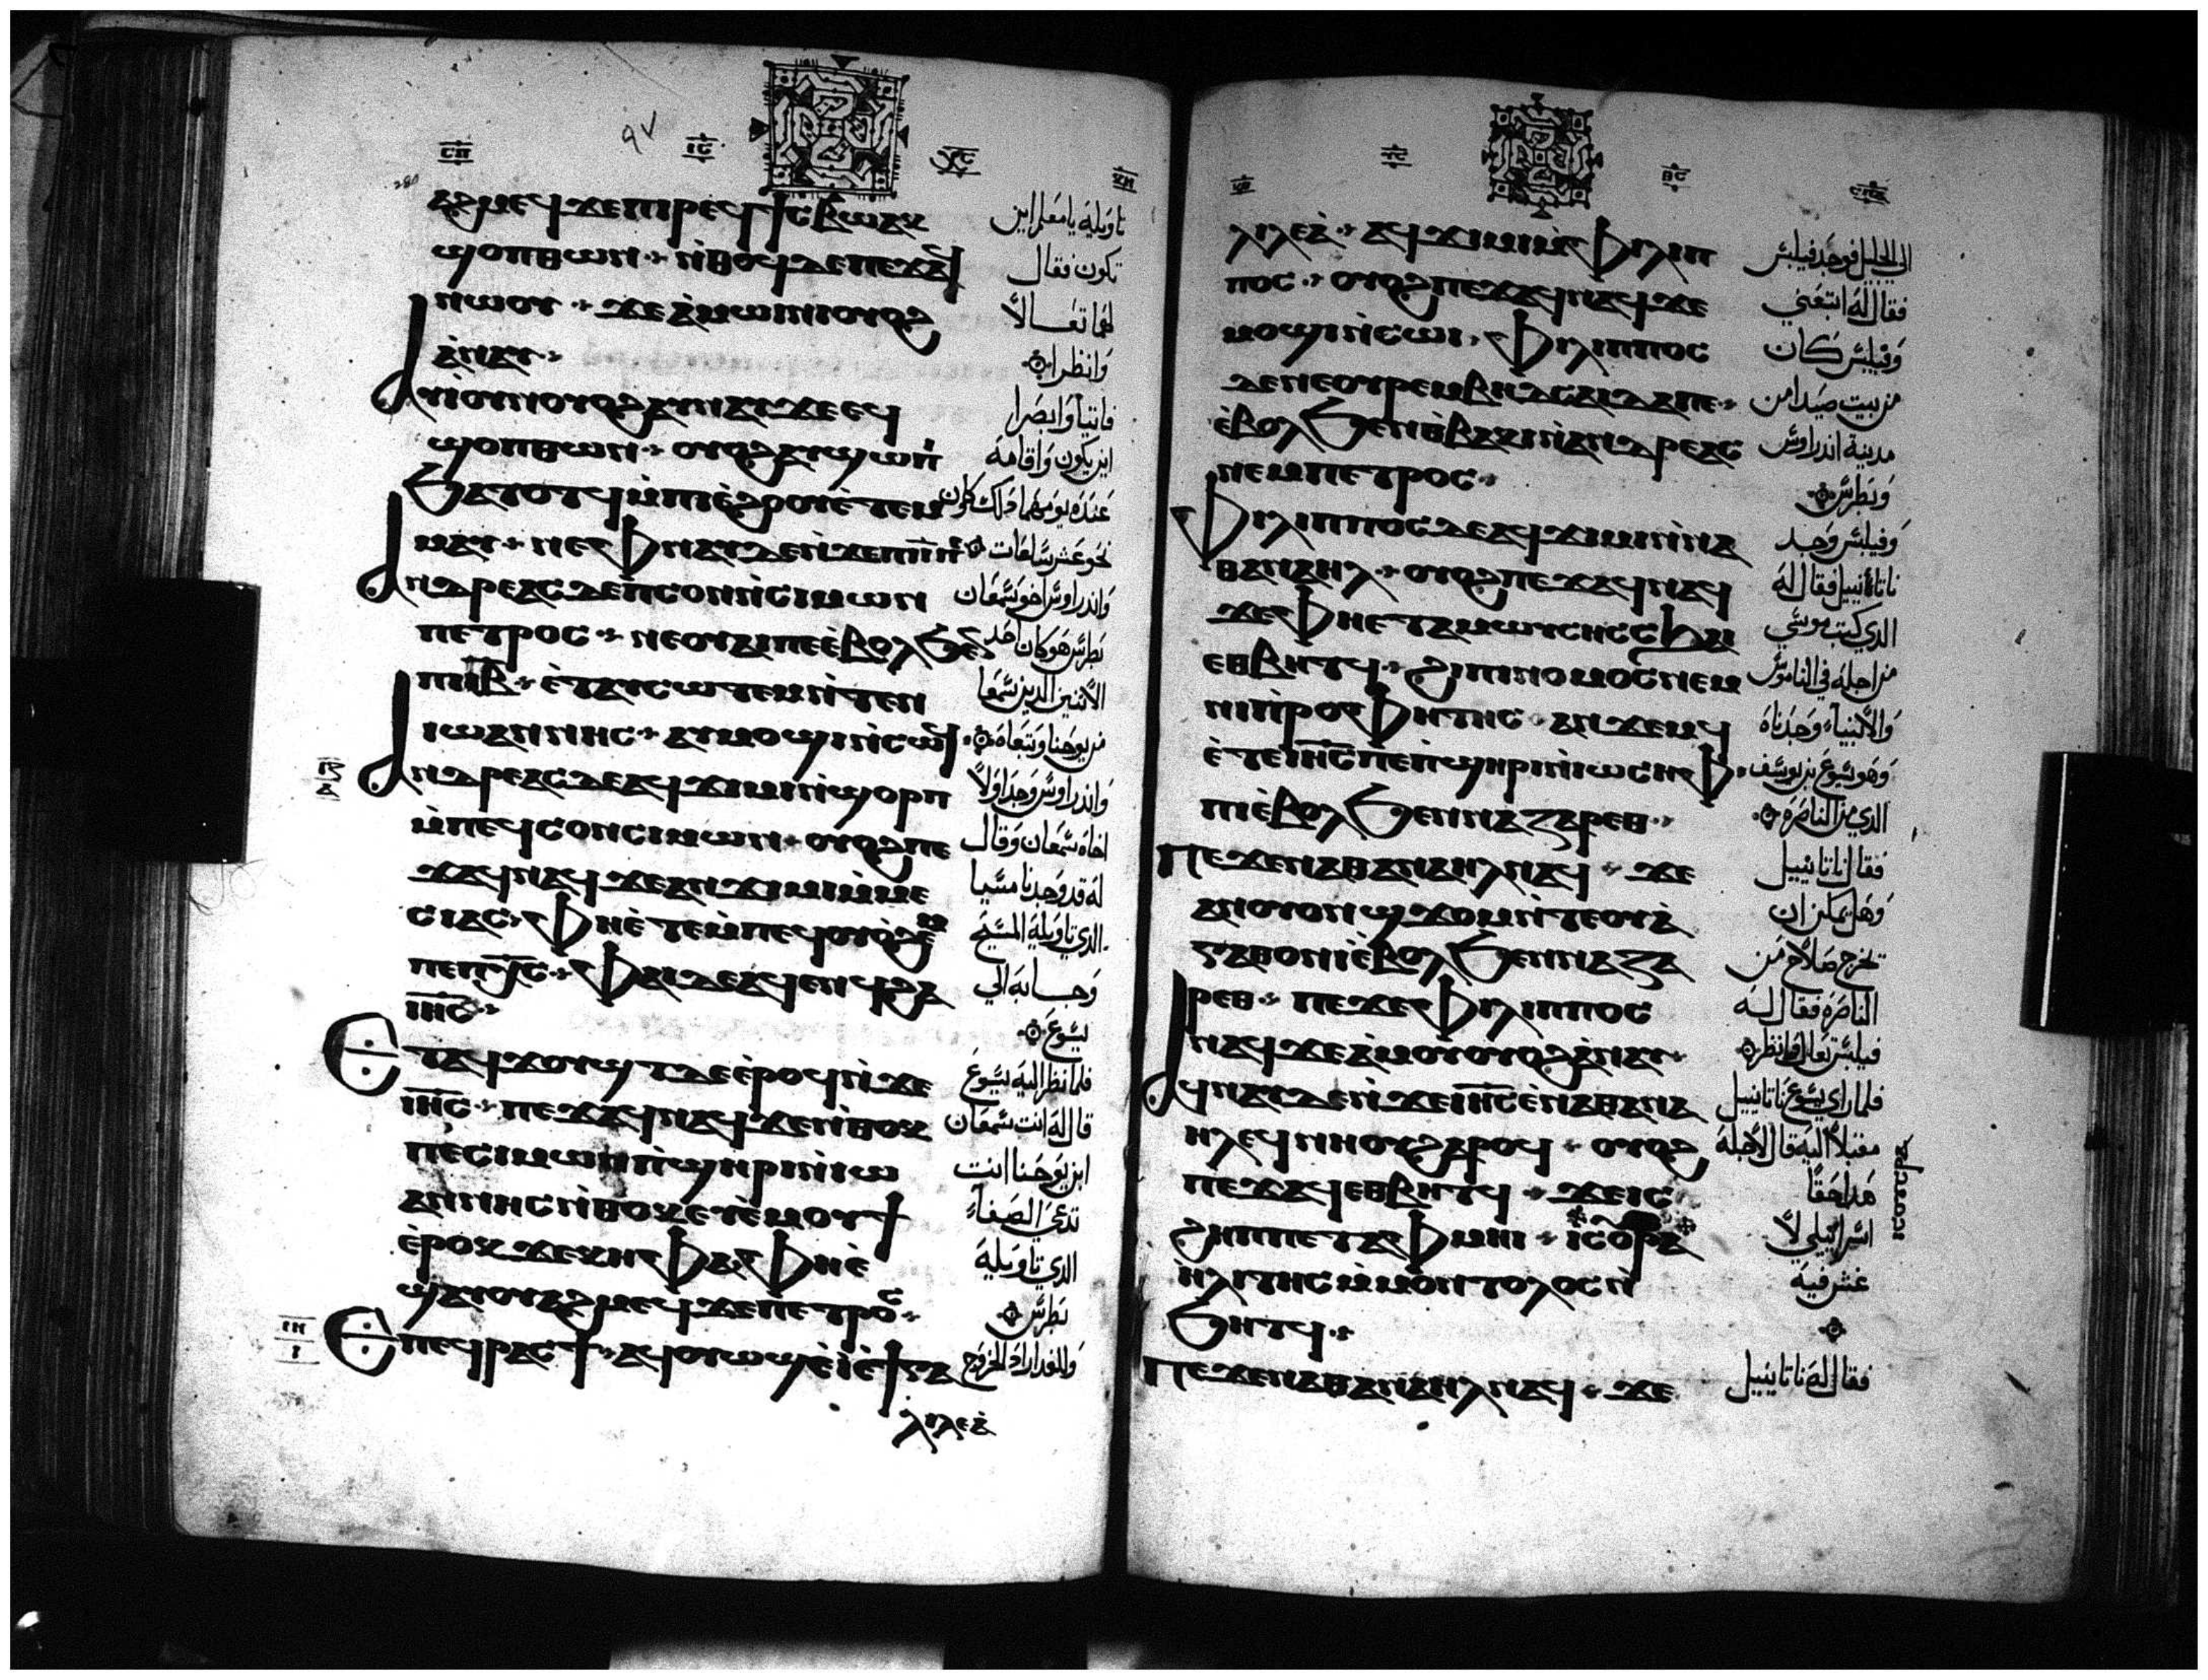 ⲥⲡ ٩٧ ⲓⲥ ⲭⲥ ⲕⲏ
280
ⲁϩⲙⲉϥ ϫⲉ ⲡⲓⲣⲉϥϯⲥⲃⲱ ⲁⲕ
ϣⲟⲡ ⲑⲱⲛ ⁘ ⲛ̀ⲑⲟϥ ⲇⲉ ⲡⲉϫⲁϥ
ⲛⲱⲟⲩ ⁘ ϫⲉ ⲁ̀ⲙⲱⲓⲛⲓ ⲟⲩⲟϩ
ⲁ̀ⲛⲁⲩ ⁘
ⲁⲩⲓ̀ ⲟⲩⲛ ⲟⲩⲟϩ ⲁⲩⲛⲁⲩ ϫⲉ ⲉϥ
ϣⲟⲡ ⲑⲱⲛ ⁘ ⲟⲩⲟϩ ⲁⲩϣⲱⲡⲓ
ϧⲁⲧⲟⲧϥ ⲙ̀ⲡⲓⲉ̀ϩⲟⲟⲩ ⲉ̀ⲧⲉⲙ
ⲙⲁⲩ ⁘ ⲛⲉ ⲫⲛⲁⲩ ⲇⲉ ⲛ̀ϫⲉⲡⲓⲓ̅ ⲡⲉ
ⲁⲛⲇⲣⲉⲁⲥ ⲇⲉ ⲡ̀ⲥⲟⲛ ⲛ̀ⲥⲓⲙⲱⲛ
ⲡⲉⲧⲣⲟⲥ ⁘ ⲛⲉ ⲟⲩⲁⲓ ⲡⲉ ⲉⲃⲟⲗ ϧⲉⲛ
ⲡⲓⲃ̅ ⁘ ⲉ̀ⲧⲁⲩⲥⲱⲧⲉⲙ ⲛ̀ⲧⲉⲛ
ⲓⲱⲁⲛⲛⲏⲥ ⁘ ⲁⲩⲙⲟϣⲓ ⲛ̀ⲥⲱϥ
ⲁⲛⲇⲣⲉⲁⲥ ⲇⲉ ⲁϥϫⲓⲙⲓ ⲛ̀ϣⲟⲣⲡ
ⲙ̀ⲡⲉϥⲥⲟⲛ ⲥⲓⲙⲱⲛ ⁘ ⲟⲩⲟϩ ⲡⲉ
ϫⲁϥ ⲛⲁϥ ϫⲉ ⲁⲛϫⲓⲙⲓ ⲙ̀ⲙⲉ
ⲥⲓⲁⲥ ⁘ ⲫⲏⲉ̀ⲧⲉ ⲙ̀ⲡⲉϥⲟⲩⲱϩⲉⲙ
ⲡⲉ ⲡⲭⲥ ⁘ ⲫⲁⲓ ⲇⲉ ⲁϥⲉⲛϥ ϩⲁ
ⲓⲏⲥ ⁘
ⲉⲧⲁϥϫⲟⲩϣⲧ ⲇⲉ ⲉ̀ⲣⲟϥ ⲛ̀ϫⲉ
ⲓⲏⲥ ⁘ ⲡⲉϫⲁϥ ⲛⲁϥ ϫⲉ ⲛ̀ⲑⲟⲕ
ⲡⲉ ⲥⲓⲙⲱⲛ ⲡ̀ϣⲏⲣⲓ ⲛ̀ⲓⲱ
ⲁⲛⲛⲏⲥ ⲛ̀ⲑⲟⲕ ⲉⲩⲉ̀ⲙⲟⲩϯ
ⲉ̀ⲣⲟⲕ ϫⲉ ⲕⲏⲫⲁ ⲫⲏⲉ̀
ϣⲁⲩⲟⲩⲁϩⲙⲉϥ ϫⲉ ⲡⲉⲧⲣⲟⲥ ⁘
ⲉⲡⲉϥⲣⲁⲥϯ ⁘ ⲁϥⲟⲩⲱϣ ⲉ̀ⲓ̀ ⲉ̀ϯⲅⲁ
ⲗⲓⲗⲉⲁ̀
ⲓⲍ
ⲇ
ⲓⲏ
ⲓ
تاويله يا معلم اين
تكون فقال
لهما تعالا
وانظرا
فاتيا وابصرا
اين يكون واقاما
عنده يومهما ذلك
نحو عشر ساعات
واندراوس اخو سمعان
بطرس هو كان احد
الاثنين الذين سمعا
من يوحنا وتبعاه
واندراوس وجد اولا
اخاه سمعان وقال
له قد وجدنا مسيا
الذي تاويله المسيح
وجا به الى
يسوع
فلما نظر اليه يسوع
قال له انت سمعان
ابن يوحنا انت
تدعى الصفاء
الذي تاويله
بطرس
وللغد اراد الخروج
ⲩⲥ ⲑⲥ ⲥⲡⲁ
ⲗⲓⲗⲉⲁ̀ ⁘ ⲁϥϫⲓⲙⲓ ⲙ̀ⲫⲓⲗⲓⲡ
ⲡⲟⲥ ⁘ ⲟⲩⲟϩ ⲡⲉϫⲁϥ ⲛⲁϥ ϫⲉ
ⲙⲟϣⲓ ⲛ̀ⲥⲱⲓ ⁘ ⲫⲓⲗⲓⲡⲡⲟⲥ
ⲇⲉ ⲛⲉ ⲟⲩⲣⲉⲙⲃⲏⲑⲥⲁⲓⲇⲁ ⲡⲉ ⁘
ⲉ̀ⲃⲟⲗ ϧⲉⲛ ⲑⲃⲁⲕⲓ ⲛ̀ⲁⲛⲇⲣⲉⲁⲥ
ⲛⲉⲙ ⲡⲉⲧⲣⲟⲥ ⁘
ⲫⲓⲗⲓⲡⲡⲟⲥ ⲇⲉ ⲁϥϫⲓⲙⲓ ⲛ̀ⲛⲁ
ⲑⲁⲛⲁⲏⲗ ⁘ ⲟⲩⲟϩ ⲡⲉϫⲁϥ ⲛⲁϥ
ϫⲉ ⲫⲏⲉⲧⲁ ⲙⲱⲩⲥⲏⲥ ⲥϧⲁⲓ
ⲉⲑⲃⲏⲧϥ ⁘ ϩⲓ ⲡⲓⲛⲟⲙⲟⲥ ⲛⲉⲙ
ⲛⲓⲡⲣⲟⲫⲏⲧⲏⲥ ⁘ ⲁⲛϫⲉⲙϥ
ⲉ̀ⲧⲉ ⲓⲏⲥ ⲡⲉ ⲡ̀ϣⲏⲣⲓ ⲛ̀ⲓⲱⲥⲏⲫ ⁘
ⲡⲓⲉ̀ⲃⲟⲗ ϧⲉⲛ ⲛⲁⲍⲁⲣⲉⲑ ⁘
ⲡⲉϫⲉ ⲛⲁⲑⲁⲛⲁⲏⲗ ⲛⲁϥ ⁘ ϫⲉ
ⲁⲛ ⲟⲩⲟⲛ ϣϫⲟⲙ ⲛ̀ⲧⲉ ⲟⲩⲁ̀
ⲅⲁⲑⲟⲛ ⲓ̀ ⲉ̀ⲃⲟⲗ ϧⲉⲛ ⲛⲁⲍⲁ
ⲣⲉⲑ ⁘ ⲡⲉϫⲉ ⲫⲓⲗⲓⲡⲡⲟⲥ
ⲛⲁϥ ϫⲉ ⲁ̀ⲙⲟⲩ ⲟⲩⲟϩ ⲁ̀ⲛⲁⲩ ⁘
ⲁϥⲛⲁⲩ ⲇⲉ ⲛ̀ϫⲉ ⲓⲏⲥ ⲉ̀ⲛⲁⲑⲁⲛⲁ
ⲏⲗ ⲉϥⲛⲏⲟⲩ ϩⲁⲣⲟϥ ⁘ ⲟⲩⲟϩ
ⲡⲉϫⲁϥ ⲉⲑⲃⲏⲧϥ ⁘ ϫⲉ ⲓⲥ
ϩⲏⲡⲡⲉ ⲧⲁⲫⲙⲏⲓ ⁘ ⲓⲥⲣⲁ
ⲏⲗⲓⲧⲏⲥ ⲙ̀ⲙⲟⲛ ⲇⲟⲗⲟⲥ ⲛ̀
ϧⲏⲧϥ ⁘
ⲡⲉϫⲉ ⲛⲁⲑⲁⲛⲁⲏⲗ ⲛⲁϥ ⁘ ϫⲉ
الى الجليل فوجد فيلبس
فقال له اتبعني
وفيلبس كان
من بيت صيدا من
مدينة اندراوس
وبطرس
وفيلبس وجد
ناتانييل فقال له
الذي كتب موسى
من اجله في الناموس
والانبياء وجدناه
وهو يسوع بن يوسف
الذي من الناصرة
فقال ناتانييل
وهل يمكن ان
تخرج صلاح من
الناصرة فقال له
فيلبس تعال وانظر
فلما راى يسوع ناتانييل
مقبلا اليه قال لاجله
هذا حقا
اسرائيلي لا
غش فيه
فقال له ناتانييل